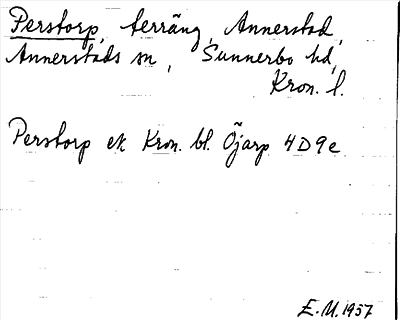 Perstorp, terräng, Annerstad,
Annerstads sn, Sunnerbo hd,
Kron. l.
Perstorp ek Kron. bl. Öjarp 4D9e
E.M. 1957